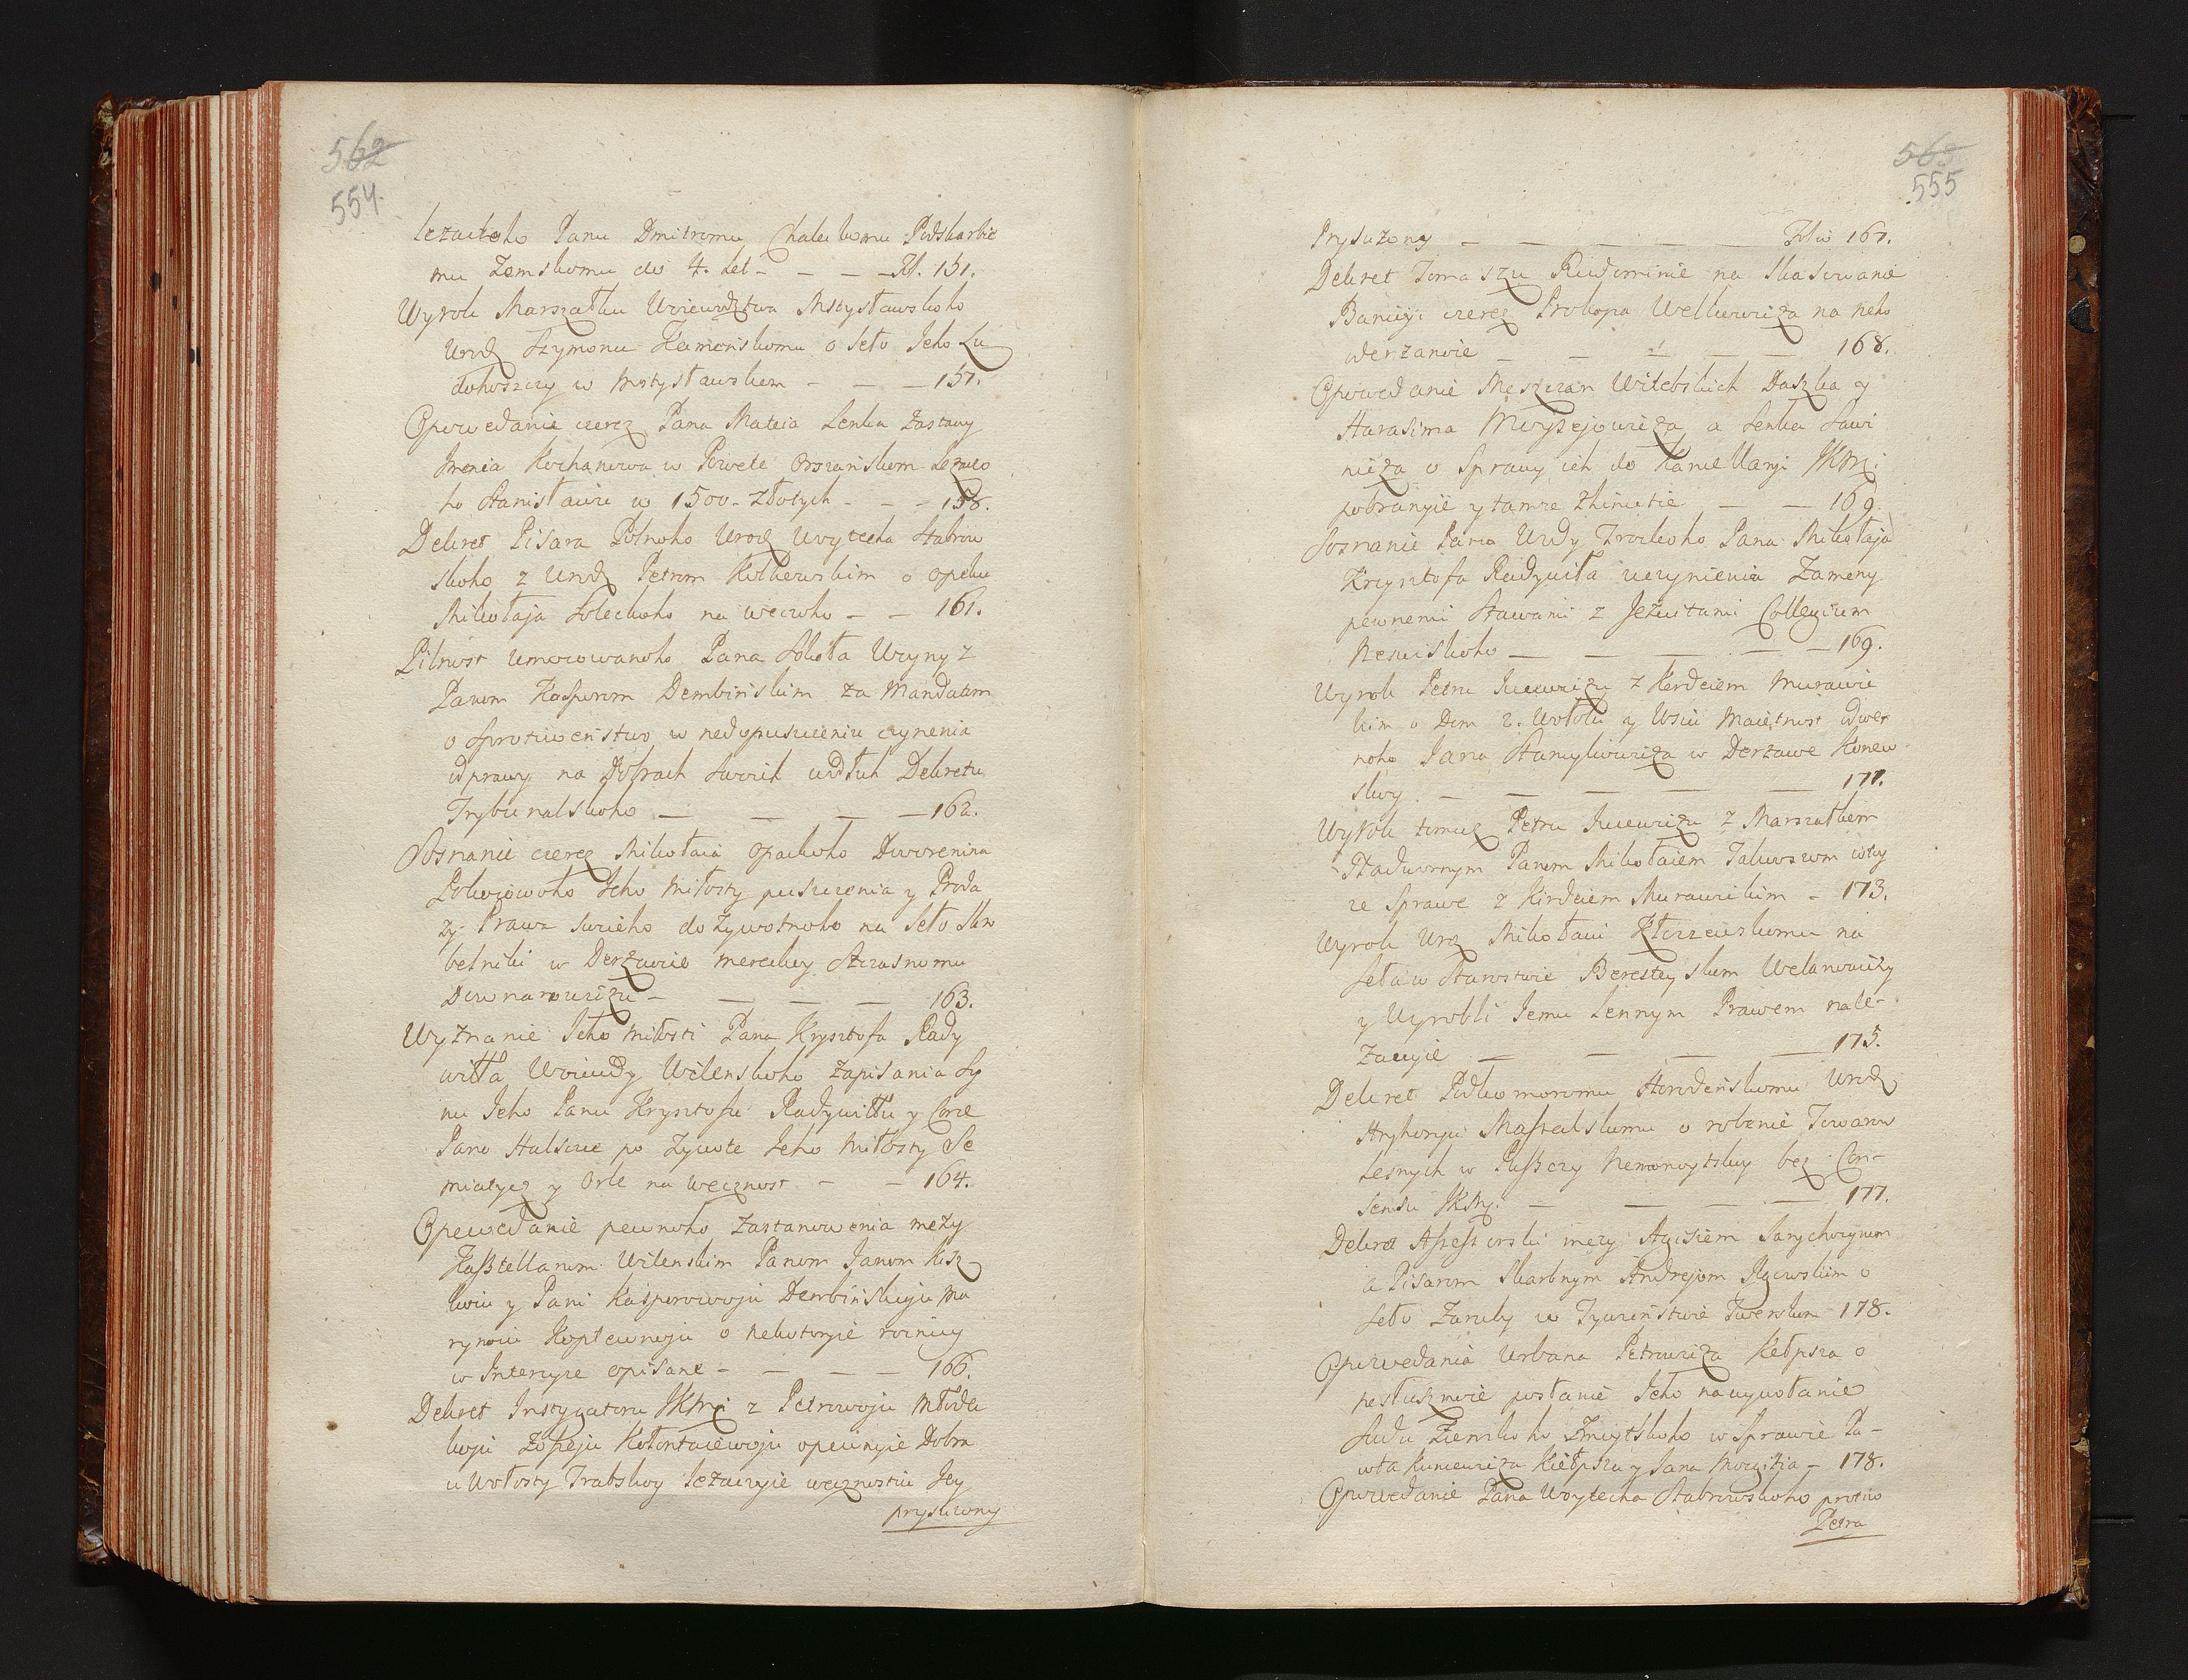 562
554.
lezaczoho Panu Dmitromu Chaleckomu Podskarbie
mu Zemskomu do 4. Let - - - - Fol. 151.
Wyrok Marszałku Woiewodztwa Mscysławskoho
Urodz Szymonu Kamenskomu o Seło Jeho Lu
dohoszczy w Mstysławskom - - - 157.
Opowedanie czerez Pana Mateia Lenka Zastawy
Imenia Kochanowa w Powete Orszanskom Lezaczo
ho Stanisławu w 1500. Złotych - - - 158.
Dekret Pisara Polnoho Urodz Woytecha Stabrow
skoho z Urodz Petrom Kotkowskim o opeku
Mikołaja Soleckoho na weczoho - - 161.
Pilnost Umocowanoho Pana Sokoła Woyny z
Panom Kasporom Dembińskim za Mandatom
o Sprotiwenstwo w nedopuszczeniu czynenia
odprawy na Dobrach Swoich wodłuh Dekretu
Trybunalskoho - - - - 162.
Soznanie czerez Mikołaia Opackoho Dworenina
Pokoiowoho Jeho Miłosty puszczenia y Proda
zy Prawa Swoieho dożywotnoho na Seło Sko
belniki w Derżawie Mereckoy Stczasnomu
Downarowiczu - - - - 163.
Wyznanie Jeho Miłosti Pana Krysztofa Rady
wiłła Woiewody Wilenskoho Zapisania Sy
nu Jeho Panu Krysztofu Radywiłłu y Corce
Pane Halszce po Zywote Jeho Miłosty Se
miatycz y Orle na Wecznost - - 164.
Opowedanie pewnoho Zastanowenia mezy
Kasztellanom Wilenskim Panom Janom Kisz
koiu y Pani Kasporowoju Dembińskuju Ma
rynoiu Kopteiwnoju o nekotoryie roznicy
w Intercyze opisane - - - - 166.
Dekret Instygatora JKMci z Petrowoju Młodec
koju Zofieju Kołontaiewoju opeiuńie Dobra
u Wołosty Trabskoy Lezaczyie wecznostiu Jey
prysuzony
563
555
Prysuzony - - - - - Folio 167.
Dekret Tomaszu Rudominie na Skasowanie
Banicyi czerez Prokopa Welkowicza na neho
oderzanoie - - - - - 168.
Opowedanie Meszczan Witebskich Daszka y
Harasima Moyzejowicza a Senka Sawi
nicza o Sprawy ich do Kancellaryi JKMci
pobranyie y tamze zhinutie - - 169.
Soznanie Pana Wdy Trockoho Pana Mikołaja
Krzysztofa Radywiła uczynienia Zameny
pewnemi Stawami z Jezuitami Collegium
Neswiskoho - - - - - 169.
Wyrok Petru Jucewiczu z Kerdeiem Murawic
kim o Dom 2. Wołoki y Wsiu Maiętnost odwet
noho Jana Stanyłowicza w Derzawe Konew
skoy - - - - - 171.
Wyrok tomuz Petru Jucewiczu z Marszałkiem
Nadwornym Panom Mikołaiem Talwoszom o toy
ze Sprawe z Kirdeiem Murawickim - 173.
Wyrok Urodz Mikołaiu Kłoczewskomu na
Seła w Starostwie Berestey skom Welanowiczy
y Wyrobki Jemu Lennym Prawem nale-
zaczyie - - - - 175.
Dekret Podkomoromu Horodenskomu Urodz
Hryhoryu Massalskomu o robenie Towarow
Lesnych w Puszczy Nemonoytskoy bez Con-
sensu JKMci - - - - 177.
Dekret Assessorski mezy Ageiem Sarychozynom
a Pisarom Skarbnym Andrejom Ilgowskim o
Seło Zaruby w Tywuństwie Twerskom 178.
Opowedania Urbana Petrowicza Kełpsza o
nesłusznoie posłanie Jeho na wywołanie
Sudu Ziemskoho Zmoytskoho w Sprawie Pa-
wła Kuncewicza Kiełpsza y Jana Moncza - 178.
Opowedanie Pana Woytecha Stabrowskoho protiw
Petra